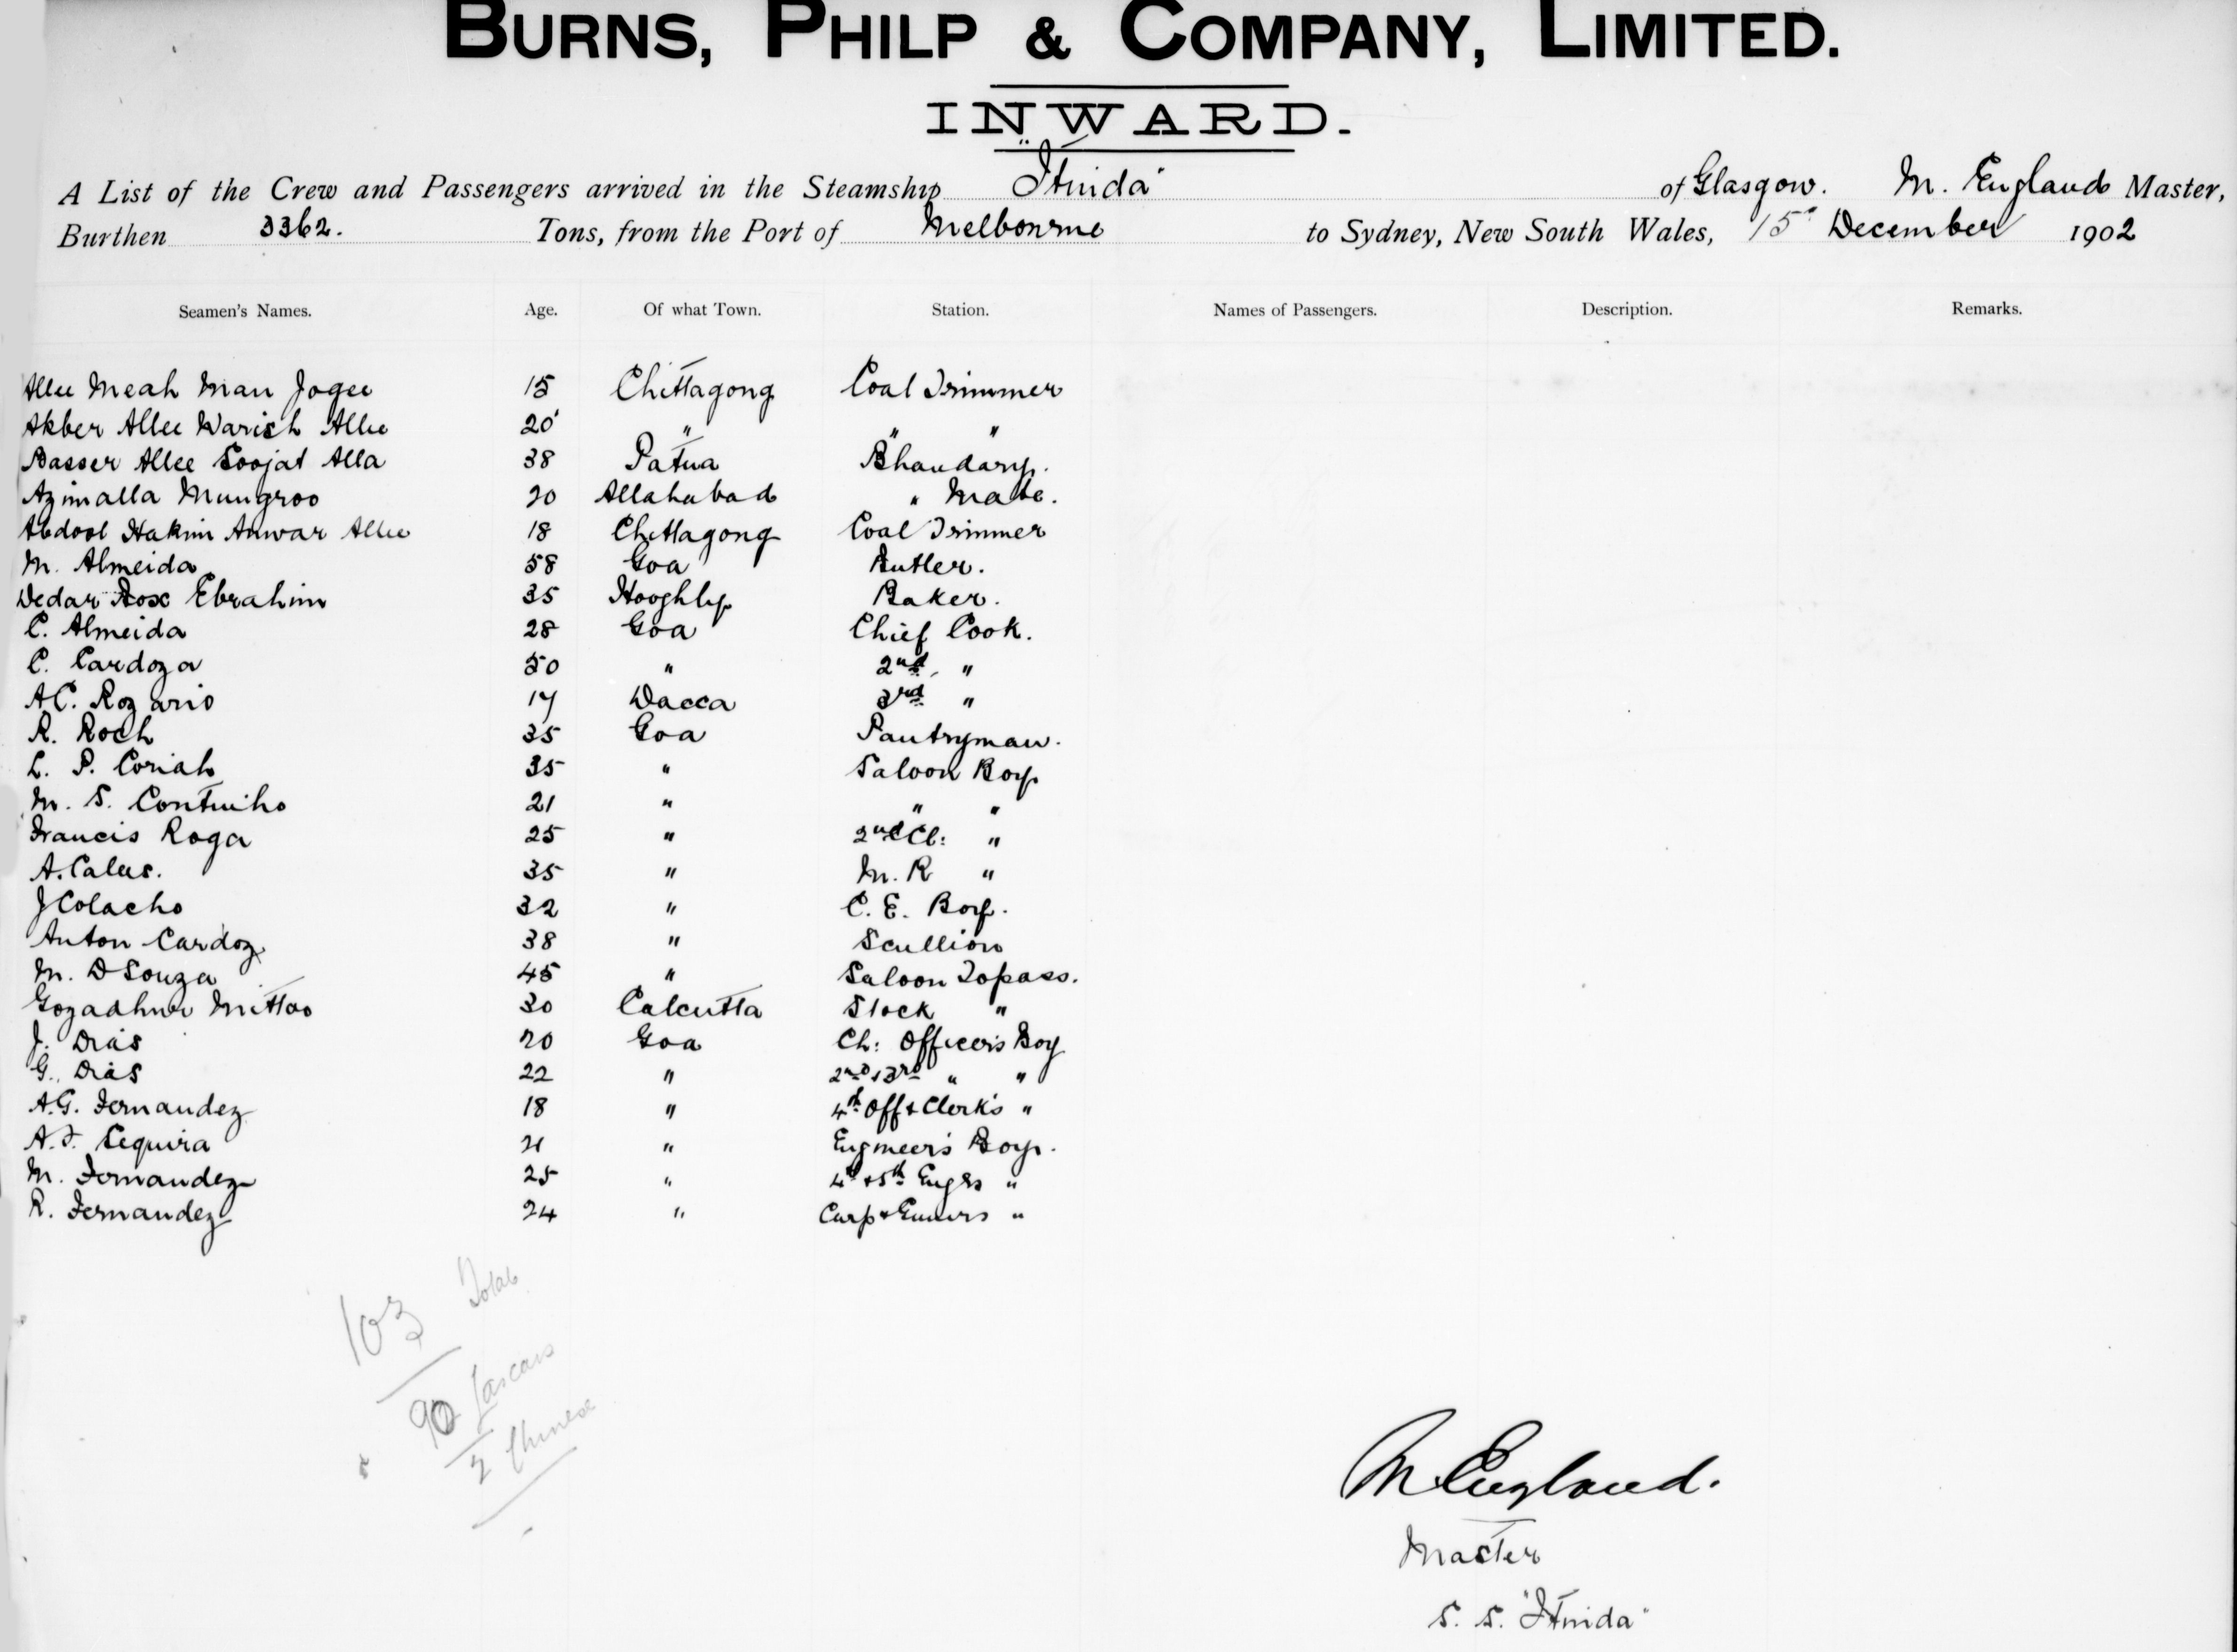 BURNS, PHILP & COMPANY, LIMITED.
INWARD.
A List of the Crew and Passengers arrived in the Steamship "Itinda" of Glasgow. M. England Master,
Burthen 3362. Tons, from the Port of Melbourne to Sydney, New South Wales, 15" December 1902
Seamen's Names. Age. Of what Town. Station. Names of Passengers. Description. Remarks.
Allee Meah Man Jogee 15 Chittagong Coal Trimmer
Akber Allee Warish Allee 20 " " "
Basser Allee Soojat Alla 38 Patna Bhandary.
Azimalla Mungroo 20 Allahabad " Mate.
Abdool Hakim Anwar Allee 18 Chittagong Coal Trimmer
M. Almeida 58 Goa Butler.
Dedar Box Ebrahim 35 Hooghly Baker.
C. Almeida 28 Goa Chief Cook.
C. Cardoza 50 " 2nd "
A C. Rozario 17 Dacca 3rd "
R. Roch 35 Goa Pantryman.
L. P. Coriah 35 " Saloon Boy
M. S. Contuiho 21 " " "
Francis Roga 25 " 2nd Cl: "
A. Calus. 35 " M. R "
J Colacho 32 " C. E. Boy.
Anton Cardoz 38 " Scullion
M. D Souza 45 " Saloon Topass.
Gozadhur Mittoo 30 Calcutta Stock "
J. Dias 20 Goa Ch: Officer's Boy
G. Dias 22 " 2nd & 3rd " "
A.G. Fernandez 18 " 4th Off & Clerk's "
A. F. Sequira 21 " Engineer's Boy.
M. Fernandez 25 " 4th & 5th Engrs "
R. Fernandez 24 " Carp & Gunners "
103 Total
90 Lascars
2 Chinese
M England.
Master
S. S. "Itinda"